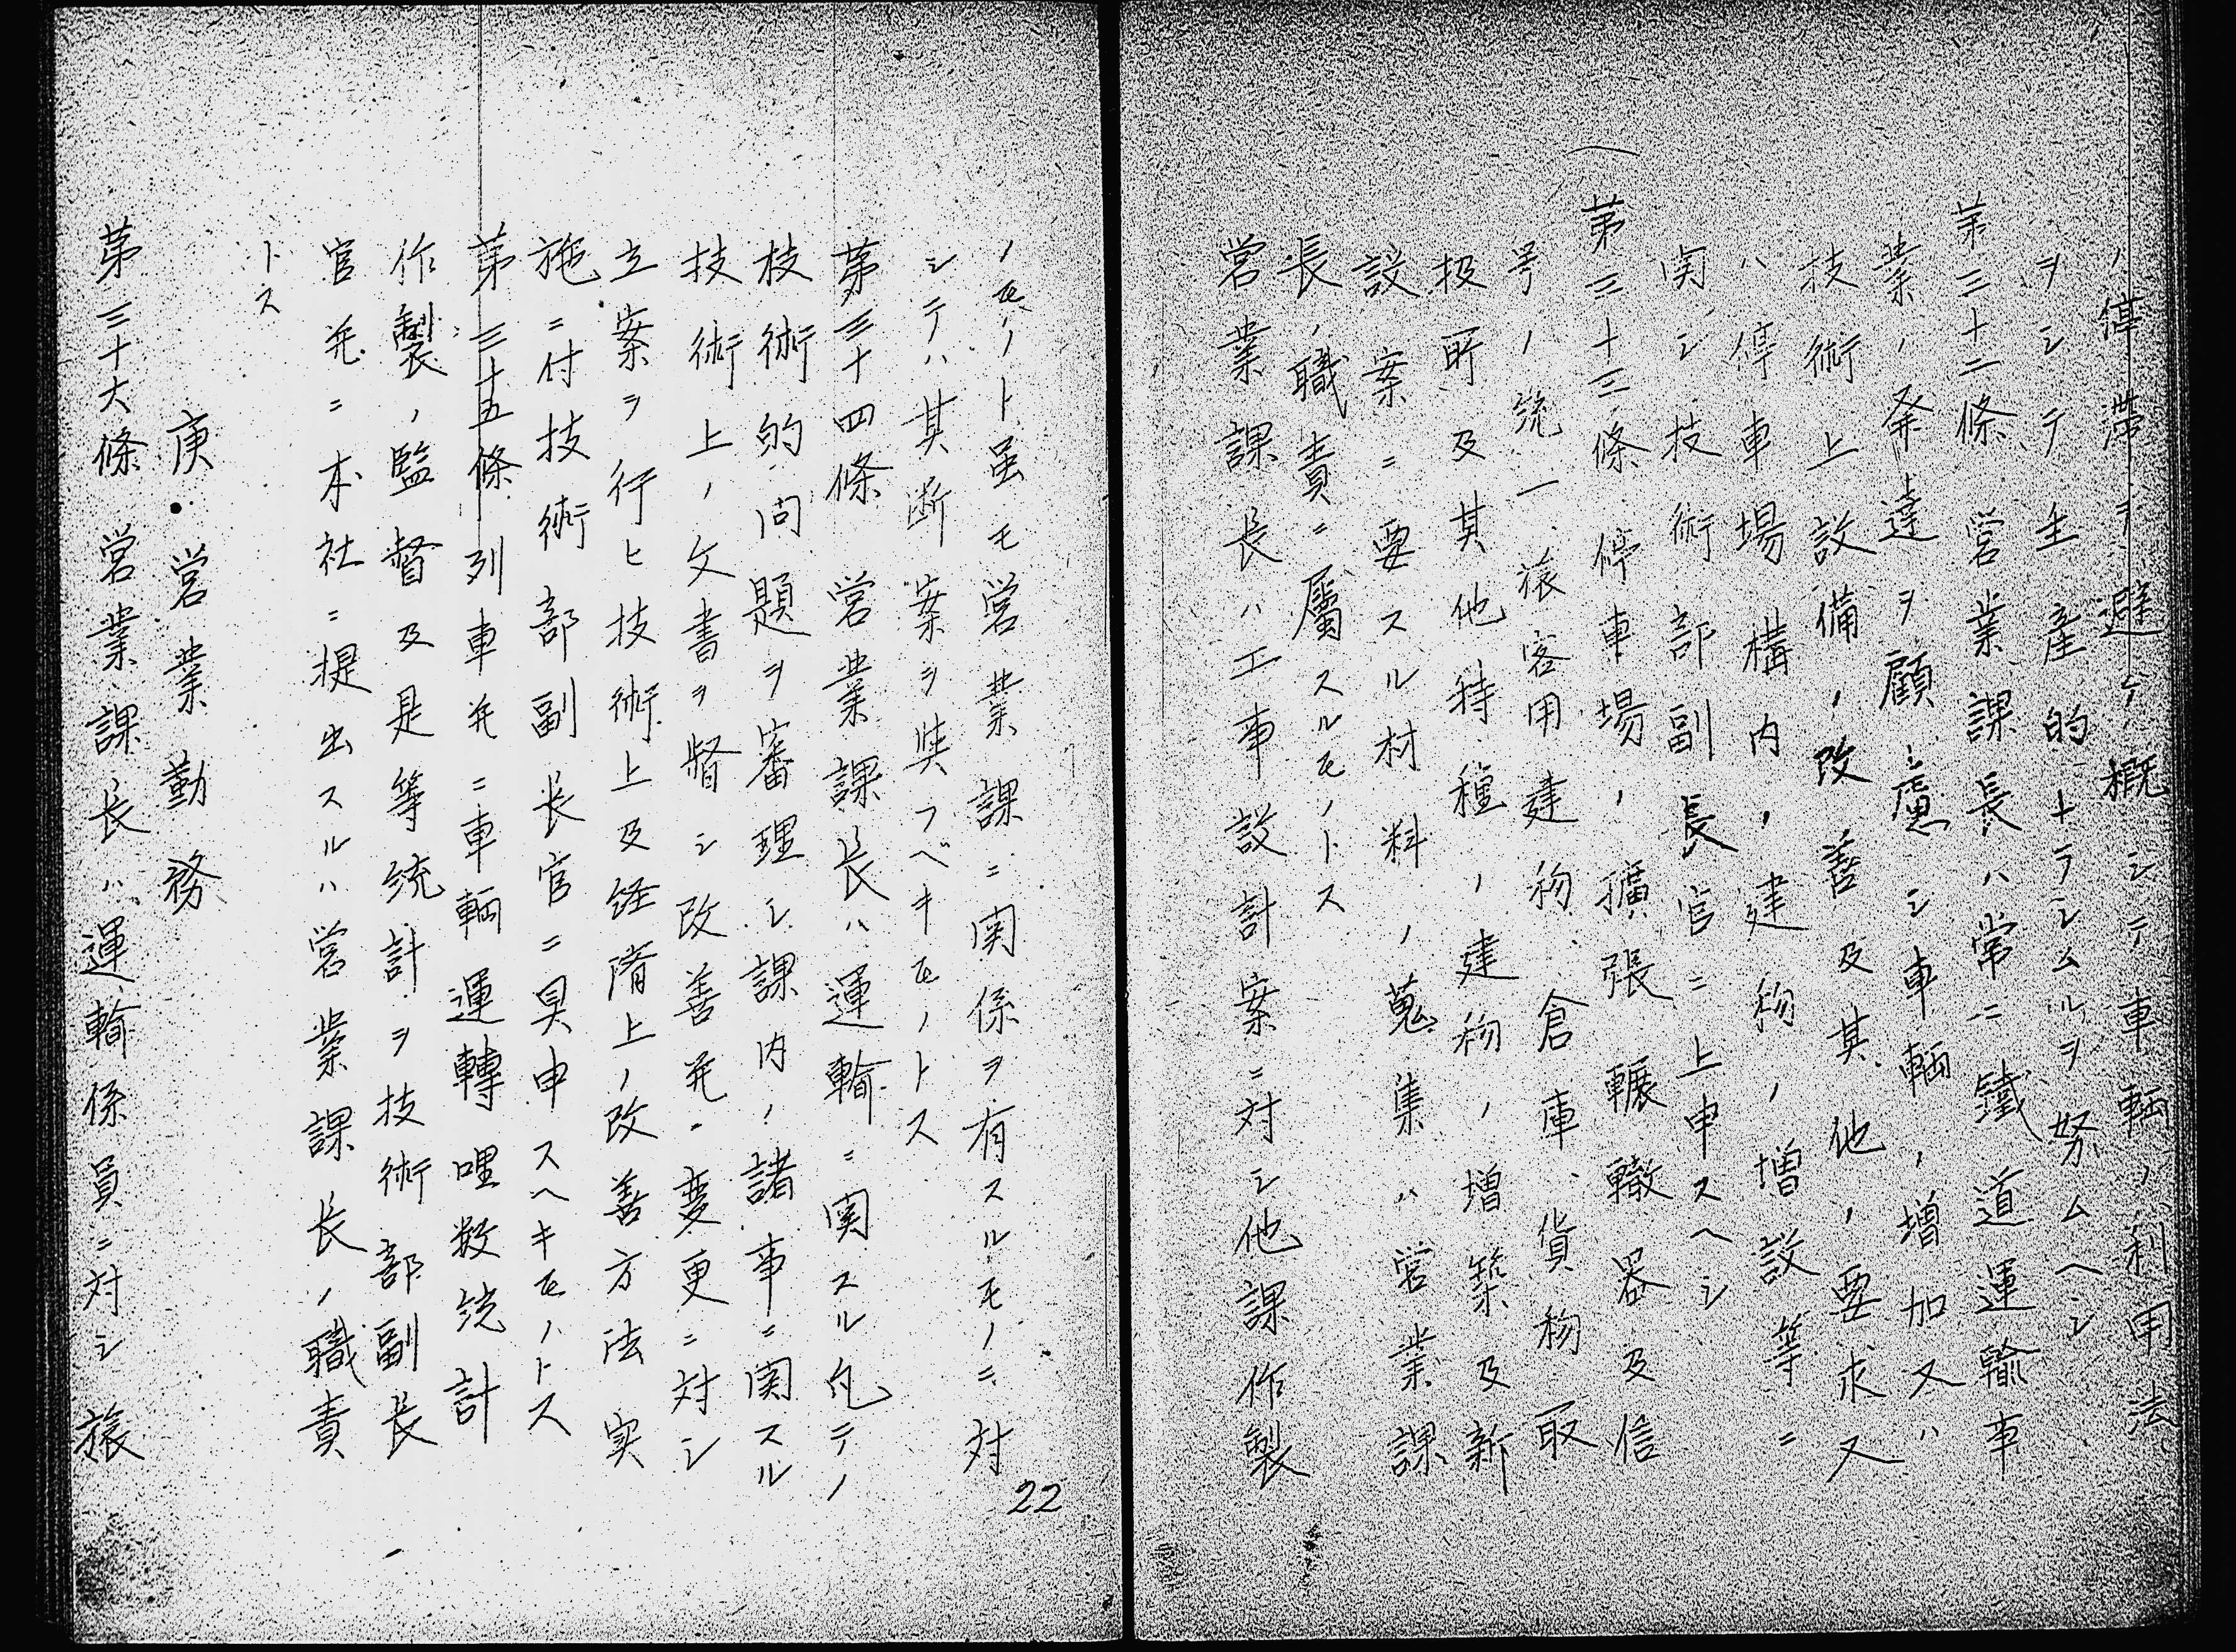 ノ停滞ヲ避ケ概シテ車輌ノ利用法
ヲシテ生産的トラシムルヲ努ムヘシ
第三十二條 営業課長ハ常ニ鐵道運輸事
業ノ発達ヲ顧慮シ車輌ノ増加又ハ
技術上設備ノ改善及其他ノ要求又
ハ停車場構内ノ建物ノ増設等ニ
関シ技術部副長官ニ上申スヘシ
第三十三條 停車場ノ擴張轉轍器及信
号ノ統一旅客用建物、倉庫、貨物取
扱所及其他特種ノ建物ノ増築及新
設案ニ要スル材料ノ蒐集ハ営業課
長ノ職責ニ屬スルモノトス
営業課長ハ工事設計案ニ対シ他課作製
ノモノト虽モ営業課ニ関係ヲ有スルモノニ対
シテハ其断案ヲ與フベキモノトス
第三十四條 営業課長ハ運輸ニ関スル凡テノ
技術的問題ヲ審理シ課内ノ諸事ニ関スル
技術上ノ文書ヲ督シ改善并変更ニ対シ
立案ヲ行ヒ技術上及経済上ノ改善方法実
施ニ付技術部副长官ニ具申スヘキモノトス
第三十五條 列車并ニ車輌運轉哩数統計
作製ノ監督及是等統計ヲ技術部副长
官并ニ本社ニ提出スルハ営業課长ノ職責
トス
庚.営業勤務
第三十六條 営業課长ハ運輸係員ニ対シ旅
22